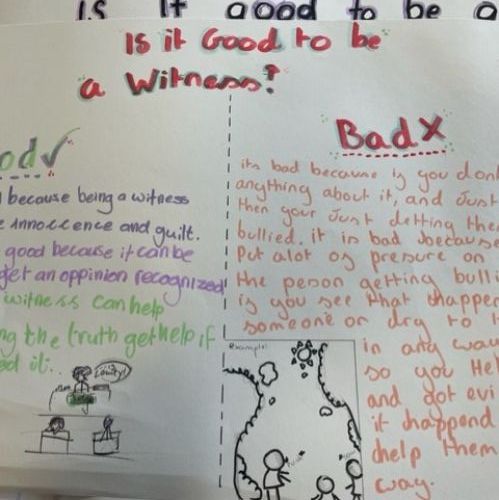 Is it good to be a
Is it Good to be
a Witness?
od✓
because being a witness
innoccence and guilt.
good because it can be
get an oppinion recognized
witness can help
ng the truth get help if
ed it..
Guilty!
Bad X
its bad because is you don
anything about it, and Just
then your Just detting the
bullied. it is bad because
Put alot os presure on
the peson getting bulli
is you see that dhappe
someone or dry to
in any way
so you Hel
and dot evi
it dhappend
dhelp them
way.
Example!